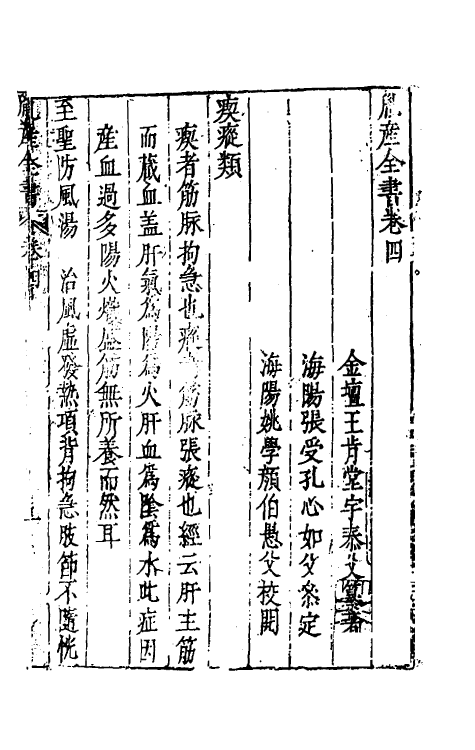 胤產全書卷四
金壇王肯堂宇泰父纂著
海陽張受孔心如父叅定
海陽姚學顏伯愚父校閱
瘈瘲類
瘈者筋脉拘急也瘲者筋脉張瘲也經云肝主筋
而蔵血盖肝氣為陽為火肝血為陰為水此症因
產血過多陽火熾盛筋無所養而然耳
至聖防風湯　治風虛發熱項背拘急肢節不隨恍
胤產全書　卷四